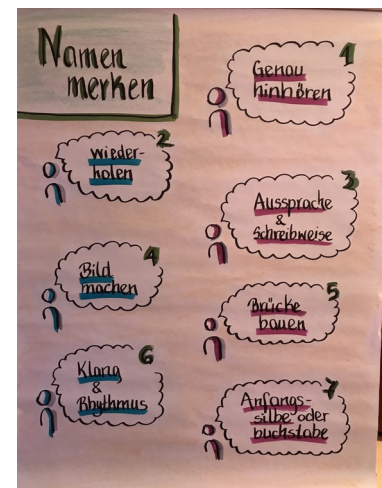 Namen
merken
1
Genau
hinhören
2
wieder-
holen
3
Aussprache
&
Schreibweise
4
Bild
machen
5
Brücke
bauen
6
Klang
&
Rhythmus
7
Anfangs-
silbe oder
buchstabe